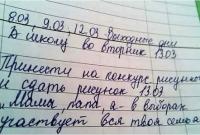 8.03, 9.03, 12.03 Выходные дни
В школу во вторник 13.03
Принести на конкурс рисунков
и сдать рисунок 13.03
"Мама, папа, я - в выборах
участвует вся твоя семья